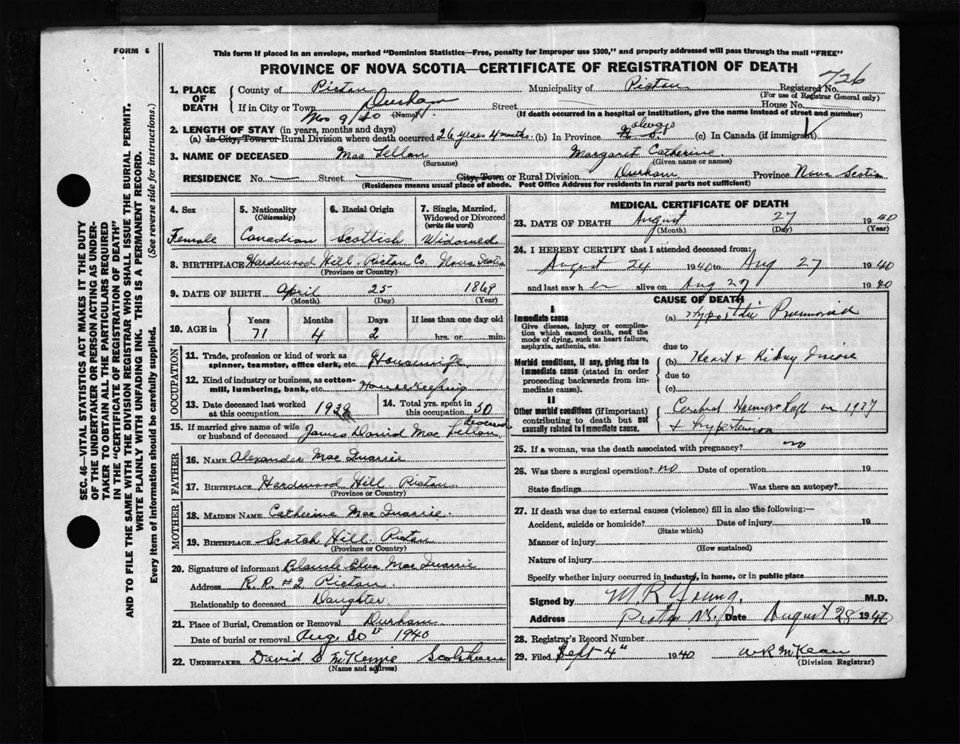 FORM 6
This form if placed in an envelope, marked "Dominion Statistics—Free, penalty for improper use $300," and properly addressed will pass through the mail "FREE"
PROVINCE OF NOVA SCOTIA—CERTIFICATE OF REGISTRATION OF DEATH
726
1. PLACE OF DEATH
County of Pictou Municipality of Pictou Registered No.
(For use of Registrar General only)
If in City or Town Durham Street House No.
(Name)
(If death occurred in a hospital or institution, give the name instead of street and number)
Nov 9/40
2. LENGTH OF STAY (in years, months and days)
(a) In City, Town or Rural Division where death occurred 26 years 4 months. (b) In Province always (c) In Canada (if immigrant)
3. NAME OF DECEASED Mac Lellan Margaret Catherine
(Surname) (Given name or names)
RESIDENCE No. — Street — City, Town or Rural Division Durham Province Nova Scotia
(Residence means usual place of abode. Post Office Address for residents in rural parts not sufficient)
4. Sex
Female
5. Nationality
(Citizenship)
Canadian
6. Racial Origin
Scottish
7. Single, Married, Widowed or Divorced
(write the word)
Widowed
8. BIRTHPLACE Hardwood Hill. Pictou Co. Nova Scotia
(Province or Country)
9. DATE OF BIRTH April 25 1869
(Month) (Day) (Year)
10. AGE in
Years Months Days If less than one day old
71 4 2 hrs. or min.
OCCUPATION
11. Trade, profession or kind of work as spinner, teamster, office clerk, etc. Housewife
12. Kind of industry or business, as cotton-mill, lumbering, bank, etc. Housekeeping
13. Date deceased last worked at this occupation 1938
14. Total yrs. spent in this occupation 50
15. If married give name of wife or husband of deceased James David Mac Lellan deceased
FATHER
16. NAME Alexander Mac Quarrie
17. BIRTHPLACE Hardwood Hill Pictou
(Province or Country)
MOTHER
18. MAIDEN NAME Catherine Mac Quarrie.
19. BIRTHPLACE Scotch Hill. Pictou
(Province or Country)
20. Signature of informant Blanch Mac Quarrie
Address R.R. #2 Pictou
Relationship to deceased Daughter
21. Place of Burial, Cremation or Removal Durham
Date of burial or removal Aug. 30 1940
22. UNDERTAKER David McKenzie
(Name and address)
MEDICAL CERTIFICATE OF DEATH
23. DATE OF DEATH August 27 1940
(Month) (Day) (Year)
24. I HEREBY CERTIFY that I attended deceased from:
August 24 1940 to Aug 27 1940
and last saw her alive on Aug 27 1940
CAUSE OF DEATH
I
Immediate cause (a) Hypostatic Pneumonia
Give disease, injury or complication which caused death, not the mode of dying, such as heart failure, asphyxia, asthenia, etc.
due to
Morbid conditions, if any, giving rise to immediate cause (stated in order proceeding backwards from immediate cause).
(b) Heart & Kidney
due to
(c)
II
Other morbid conditions (if important) contributing to death but not causally related to immediate cause.
Cerebral Haemorrhage in 1937
& Hypertension
25. If a woman, was the death associated with pregnancy? no
26. Was there a surgical operation? no Date of operation 19
State findings Was there an autopsy?
27. If death was due to external causes (violence) fill in also the following:—
Accident, suicide or homicide? Date of injury 19
(State which)
Manner of injury
(How sustained)
Nature of injury
Specify whether injury occurred in industry, in home, or in public place
Signed by M.R. Young, M.D.
Address Pictou N.S. Date August 28 1940
28. Registry's Record Number
29. Filed Sept 4th 1940 McKean
(Division Registrar)
SEC. 46—VITAL STATISTICS ACT MAKES IT THE DUTY
OF THE UNDERTAKER OR PERSON ACTING AS UNDER-
TAKER TO OBTAIN ALL THE PARTICULARS REQUIRED
IN THE "CERTIFICATE OF REGISTRATION OF DEATH"
AND TO FILE THE SAME WITH THE DIVISION REGISTRAR WHO SHALL ISSUE THE BURIAL PERMIT.
WRITE PLAINLY WITH UNFADING INK. THIS IS A PERMANENT RECORD.
Every item of information should be carefully supplied. (See reverse side for instructions.)